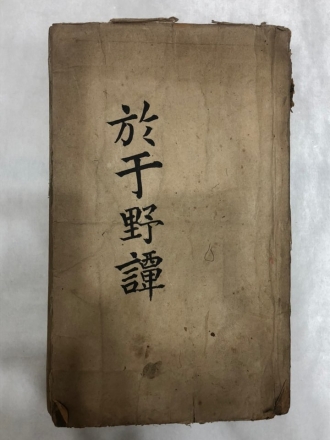 於于野譚